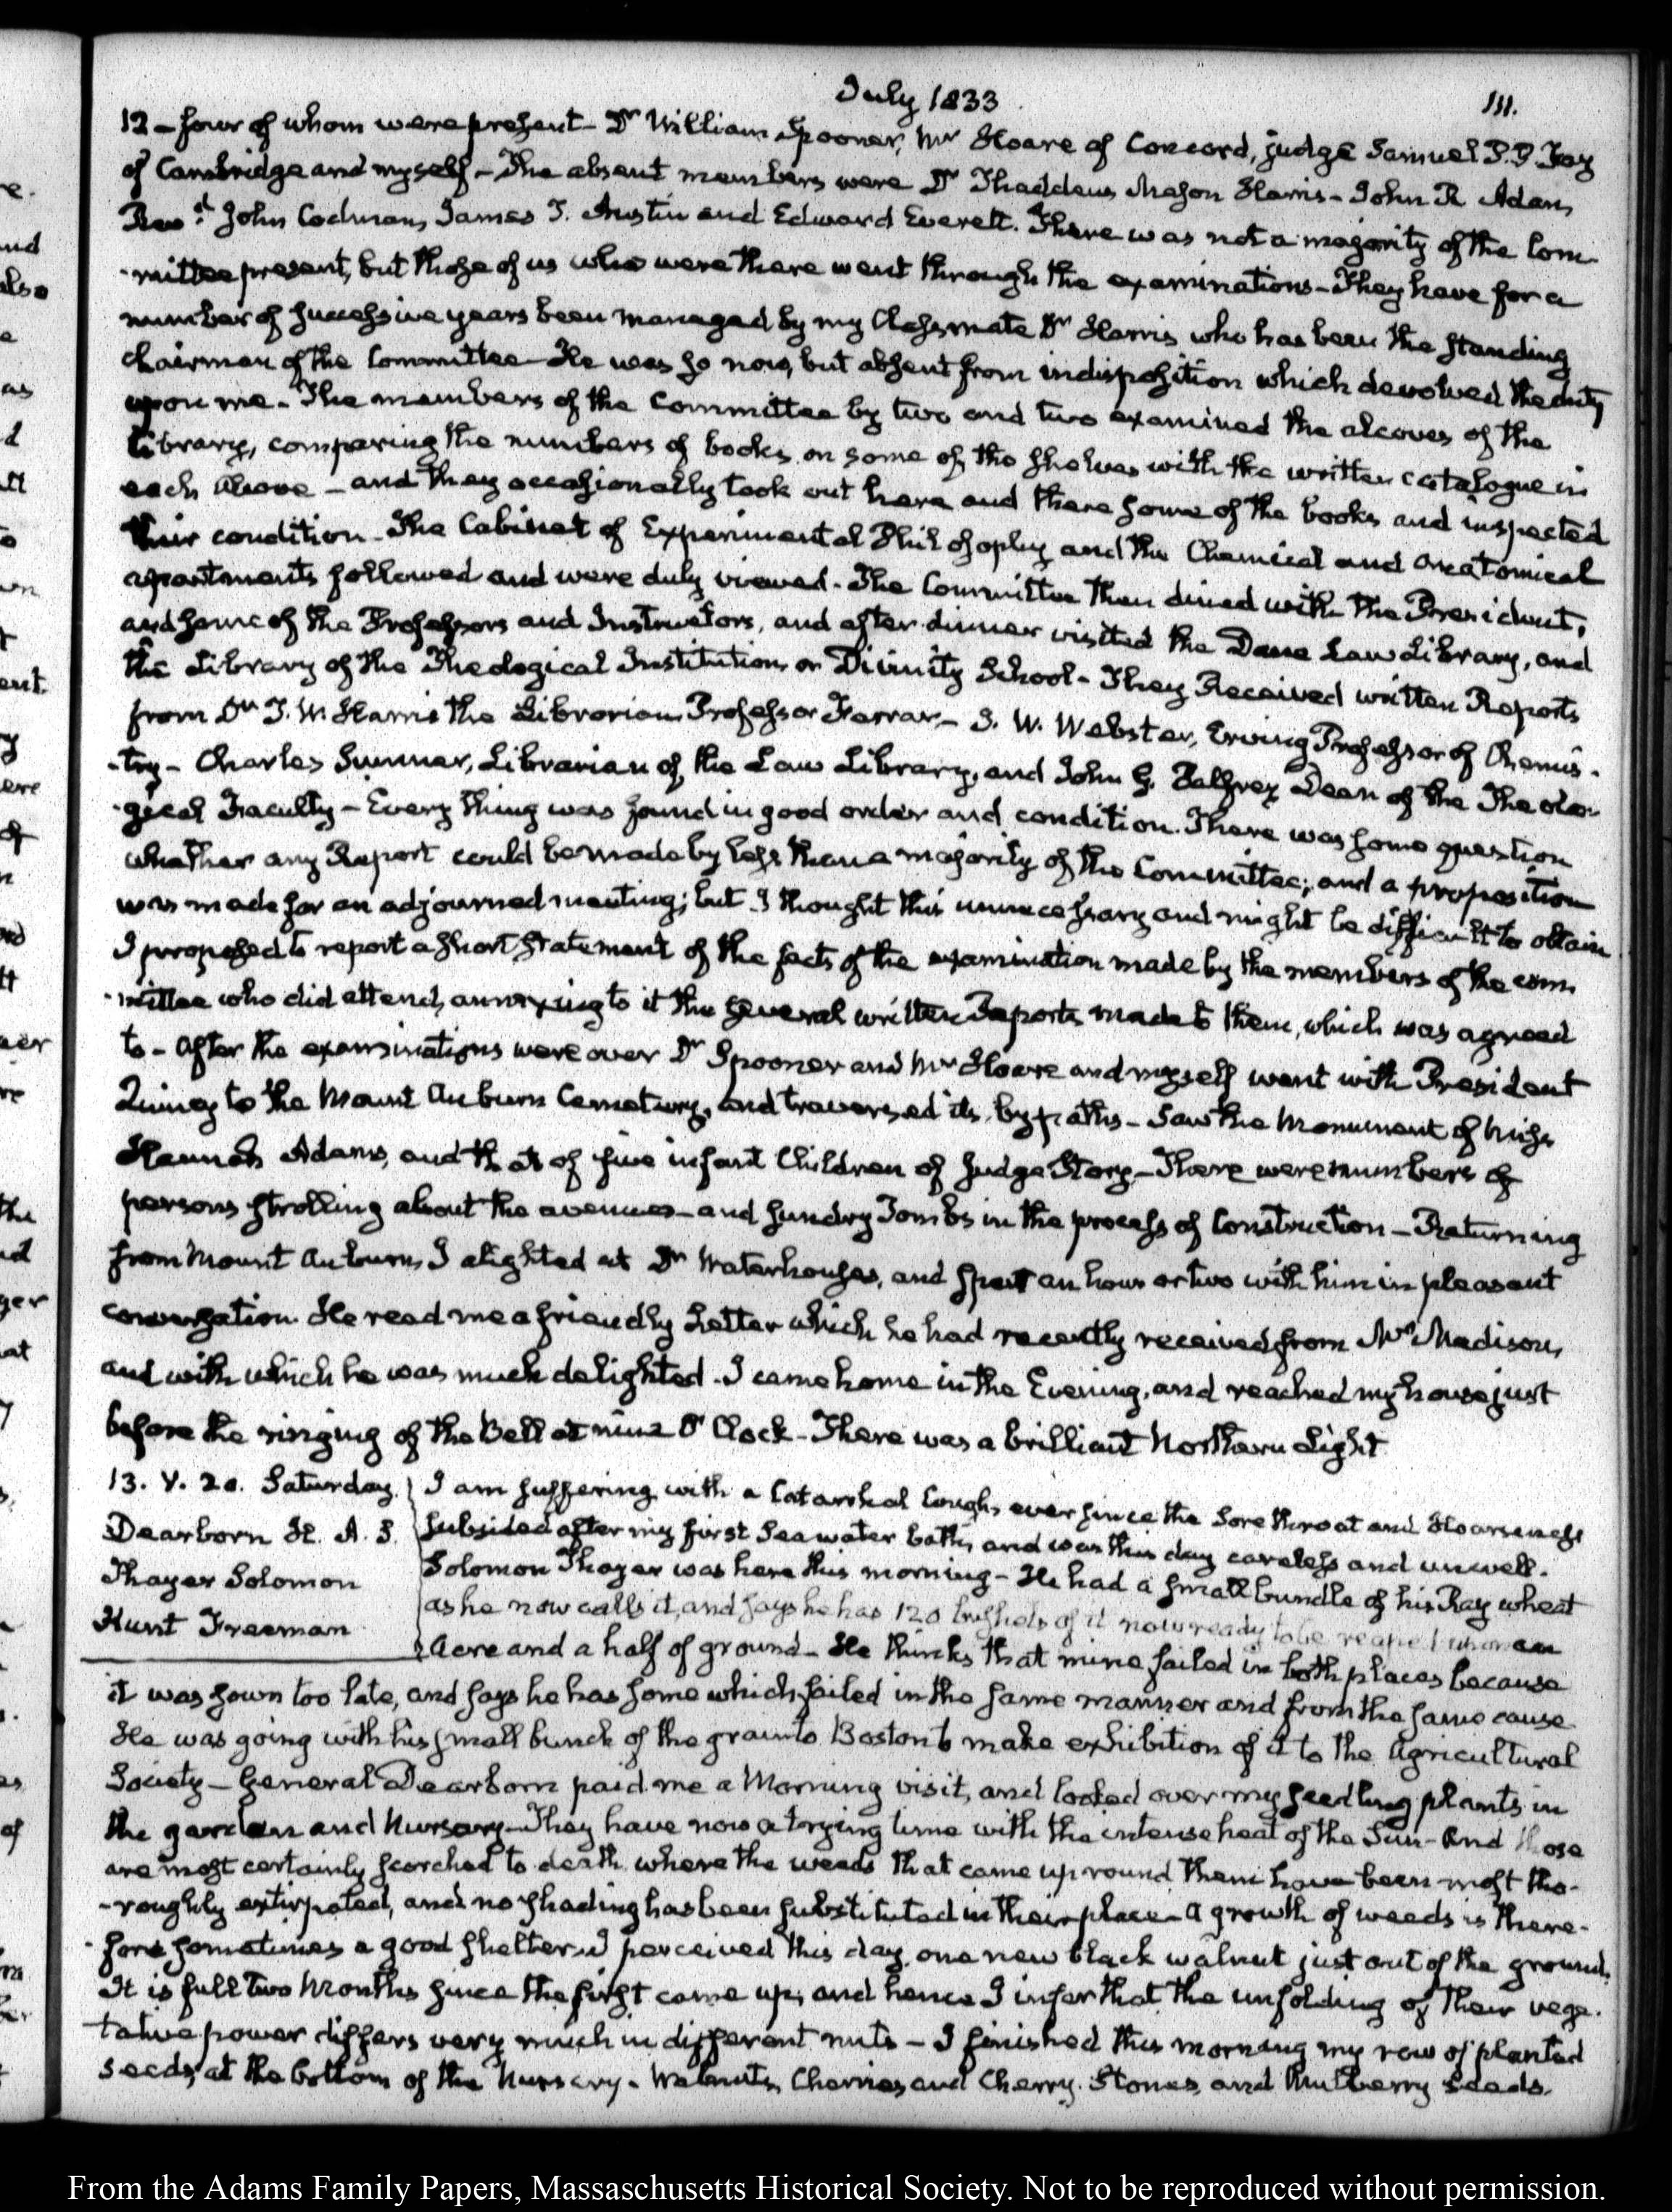 July 1833
111.
12 – four of whom were present – Dr William Spooner, Mr Hoare of Concord, judge Samuel P. P. Fay
of Cambridge and myself – The absent members were Dr Thaddeus Mason Harris – John R Adan,
Revd. John Codman, James T. Austin and Edward Everett. There was not a majority of the Com-
-mittee present, but those of us who were there went through the examinations – They have for a
number of successive years been managed by my Classmate Dr Harris who has been the standing
chairman of the Committee – He was so now, but absent from indisposition which devolved the duty
upon me – The members of the Committee by two and two examined the alcoves of the
Library, comparing the numbers of books on some of the shelves with the written catalogue in
each alcove – and they occasionally took out here and there some of the books and inspected
their condition – The Cabinet of Experimental Philosophy and the Chemical and Anatomical
apartments followed and were duly viewed – The Committee then dined with the President,
and some of the Professors and Instructors, and after dinner visited the Dane Law Library, and
the Library of the Theological Institution, or Divinity School – They Received written Reports
from Dr T. W. Harris the Librarian Professor Farrar – J. W. Webster, Erving Professor of Chemis-
-try – Charles Sumner, Librarian of the Law Library, and John G. Palfrey Dean of the Theolo-
-gical Faculty – Every thing was found in good order and condition. There was some question
whether any Report could be made by less than a majority of the Committee; and a proposition
was made for an adjourned meeting; but I thought this unnecessary and might be difficult to obtain
I proposed to report a short statement of the facts of the examination made by the members of the com-
-mittee who did attend, annexing to it the several written Reports made to them, which was agreed
to – After the examinations were over Dr Spooner and Mr Hoare and myself went with President
Quincy to the Mount Auburn Cemetery, and traversed its by paths – Saw the Monument of Miss
Hannah Adams, and that of five infant Children of Judge Story – There were numbers of
persons strolling about the avenues – and sundry Tombs in the process of Construction – Returning
from Mount Auburn, I alighted at Dr Waterhouse's, and spent an hour or two with him in pleasant
conversation. He read me a friendly Letter which he had recently received from Mr Madison,
and with which he was much delighted – I came home in the Evening, and reached my house just
before the ringing of the Bell at nine O'Clock – There was a brilliant Northern Light
13. V. 20. Saturday. I am suffering with a Catarrhal Cough, ever since the Sore throat and Hoarseness
Dearborn H. A. S. subsided after my first Sea water bath, and was this day careless and unwell.
Thayer Solomon Solomon Thayer was here this morning – He had a small bundle of his Ray wheat
Hunt Freeman as he now calls it, and says he has 120 bushels of it now ready to be reaped upon an
Acre and a half of ground – He thinks that mine failed in both places because
it was sown too late, and says he has some which failed in the same manner and from the same cause.
He was going with his small bunch of the grain to Boston to make exhibition of it to the Agricultural
Society – General Dearborn paid me a Morning visit, and looked over my seedling plants in
the garden and Nursery – They have now a trying time with the intense heat of the Sun – And those
are most certainly scorched to death where the weeds that came up round them have been most tho-
-roughly extirpated, and no shading has been substituted in their place – A growth of weeds is there-
-fore sometimes a good shelter. I perceived this day one new black walnut just out of the ground.
It is full two Months since the first came up, and hence I infer that the unfolding of their vege-
-tative power differs very much in different nuts – I finished this morning my row of planted
seeds, at the bottom of the Nursery – Walnuts, Cherries, and Cherry. Stones, and Mulberry Seeds.
From the Adams Family Papers, Massachusetts Historical Society. Not to be reproduced without permission.